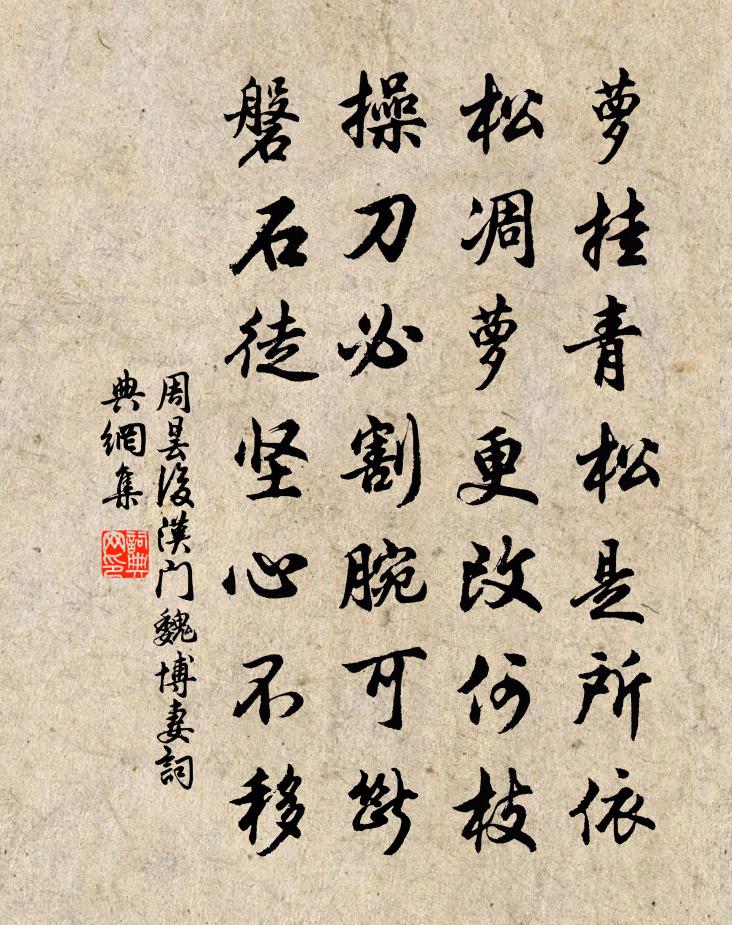 萝挂青松是所依
松凋萝更改何枝
操刀必割腕可断
磐石徒坚心不移
周昙後漢门魏博妻詞
典網集
詞典网印